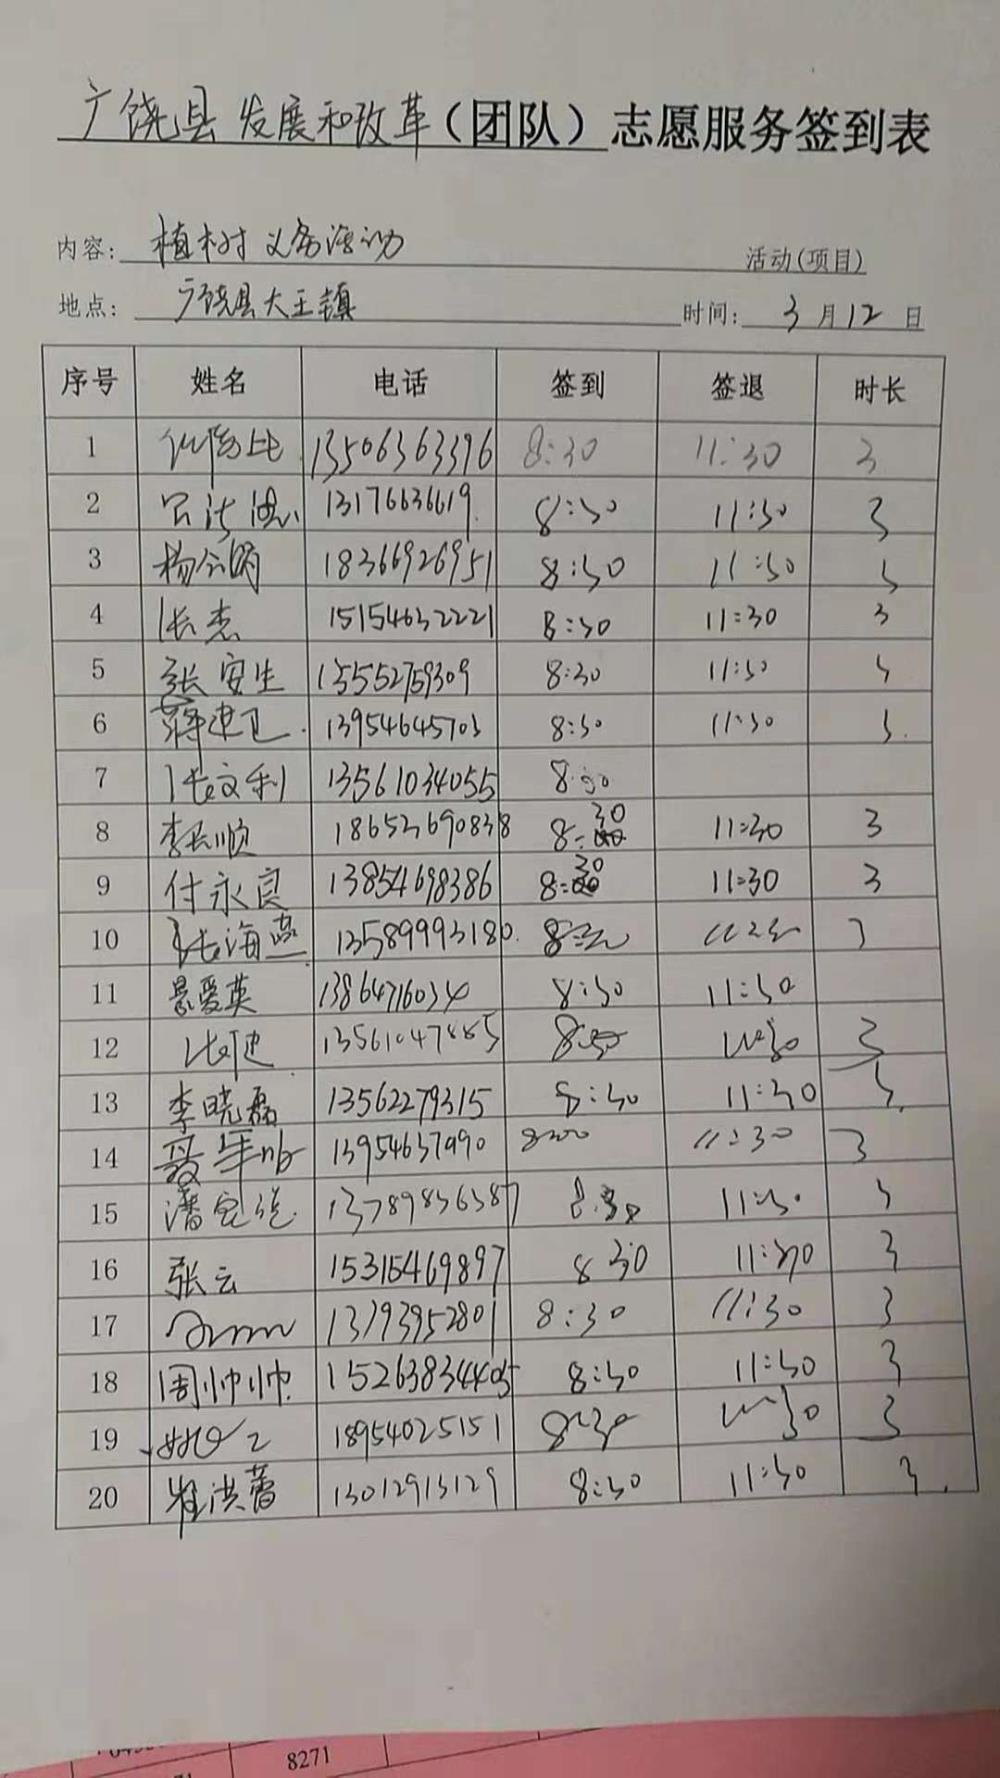 广饶县发展和改革（团队）志愿服务签到表
内容：植树义务活动 活动(项目)
地点：广饶县大王镇 时间：3月12日
序号 姓名 电话 签到 签退 时长
1 13506363396 8:30 11:30 3
2 13176636619 8:30 11:30 3
3 18366926951 8:30 11:30 3
4 张杰 15154632221 8:30 11:30 3
5 张安生 13552759309 8:30 11:30 3
6 薛建卫 13954645703 8:30 11:30 3
7 张文利 13561034055 8:30
8 李长顺 18653690838 8:30 11:30 3
9 付永良 13854698386 8:30 11:30 3
10 张海燕 13589993180 8:30 11:30 3
11 爱英 13864716034 8:30 11:30
12 13561047885 8:30 11:30 3
13 李晓磊 13562279315 8:30 11:30 3
14 13954637090 8:30 11:30 3
15 潘 13789836387 8:30 11:30 3
16 张云 15315469897 8 30 11:30 3
17 13793952801 8:30 11:30 3
18 周帅帅 15263834405 8:30 11:30 3
19 18954025151 8:30 11:30 3
20 崔洪蕾 13012913129 8:30 11:30 3
8271